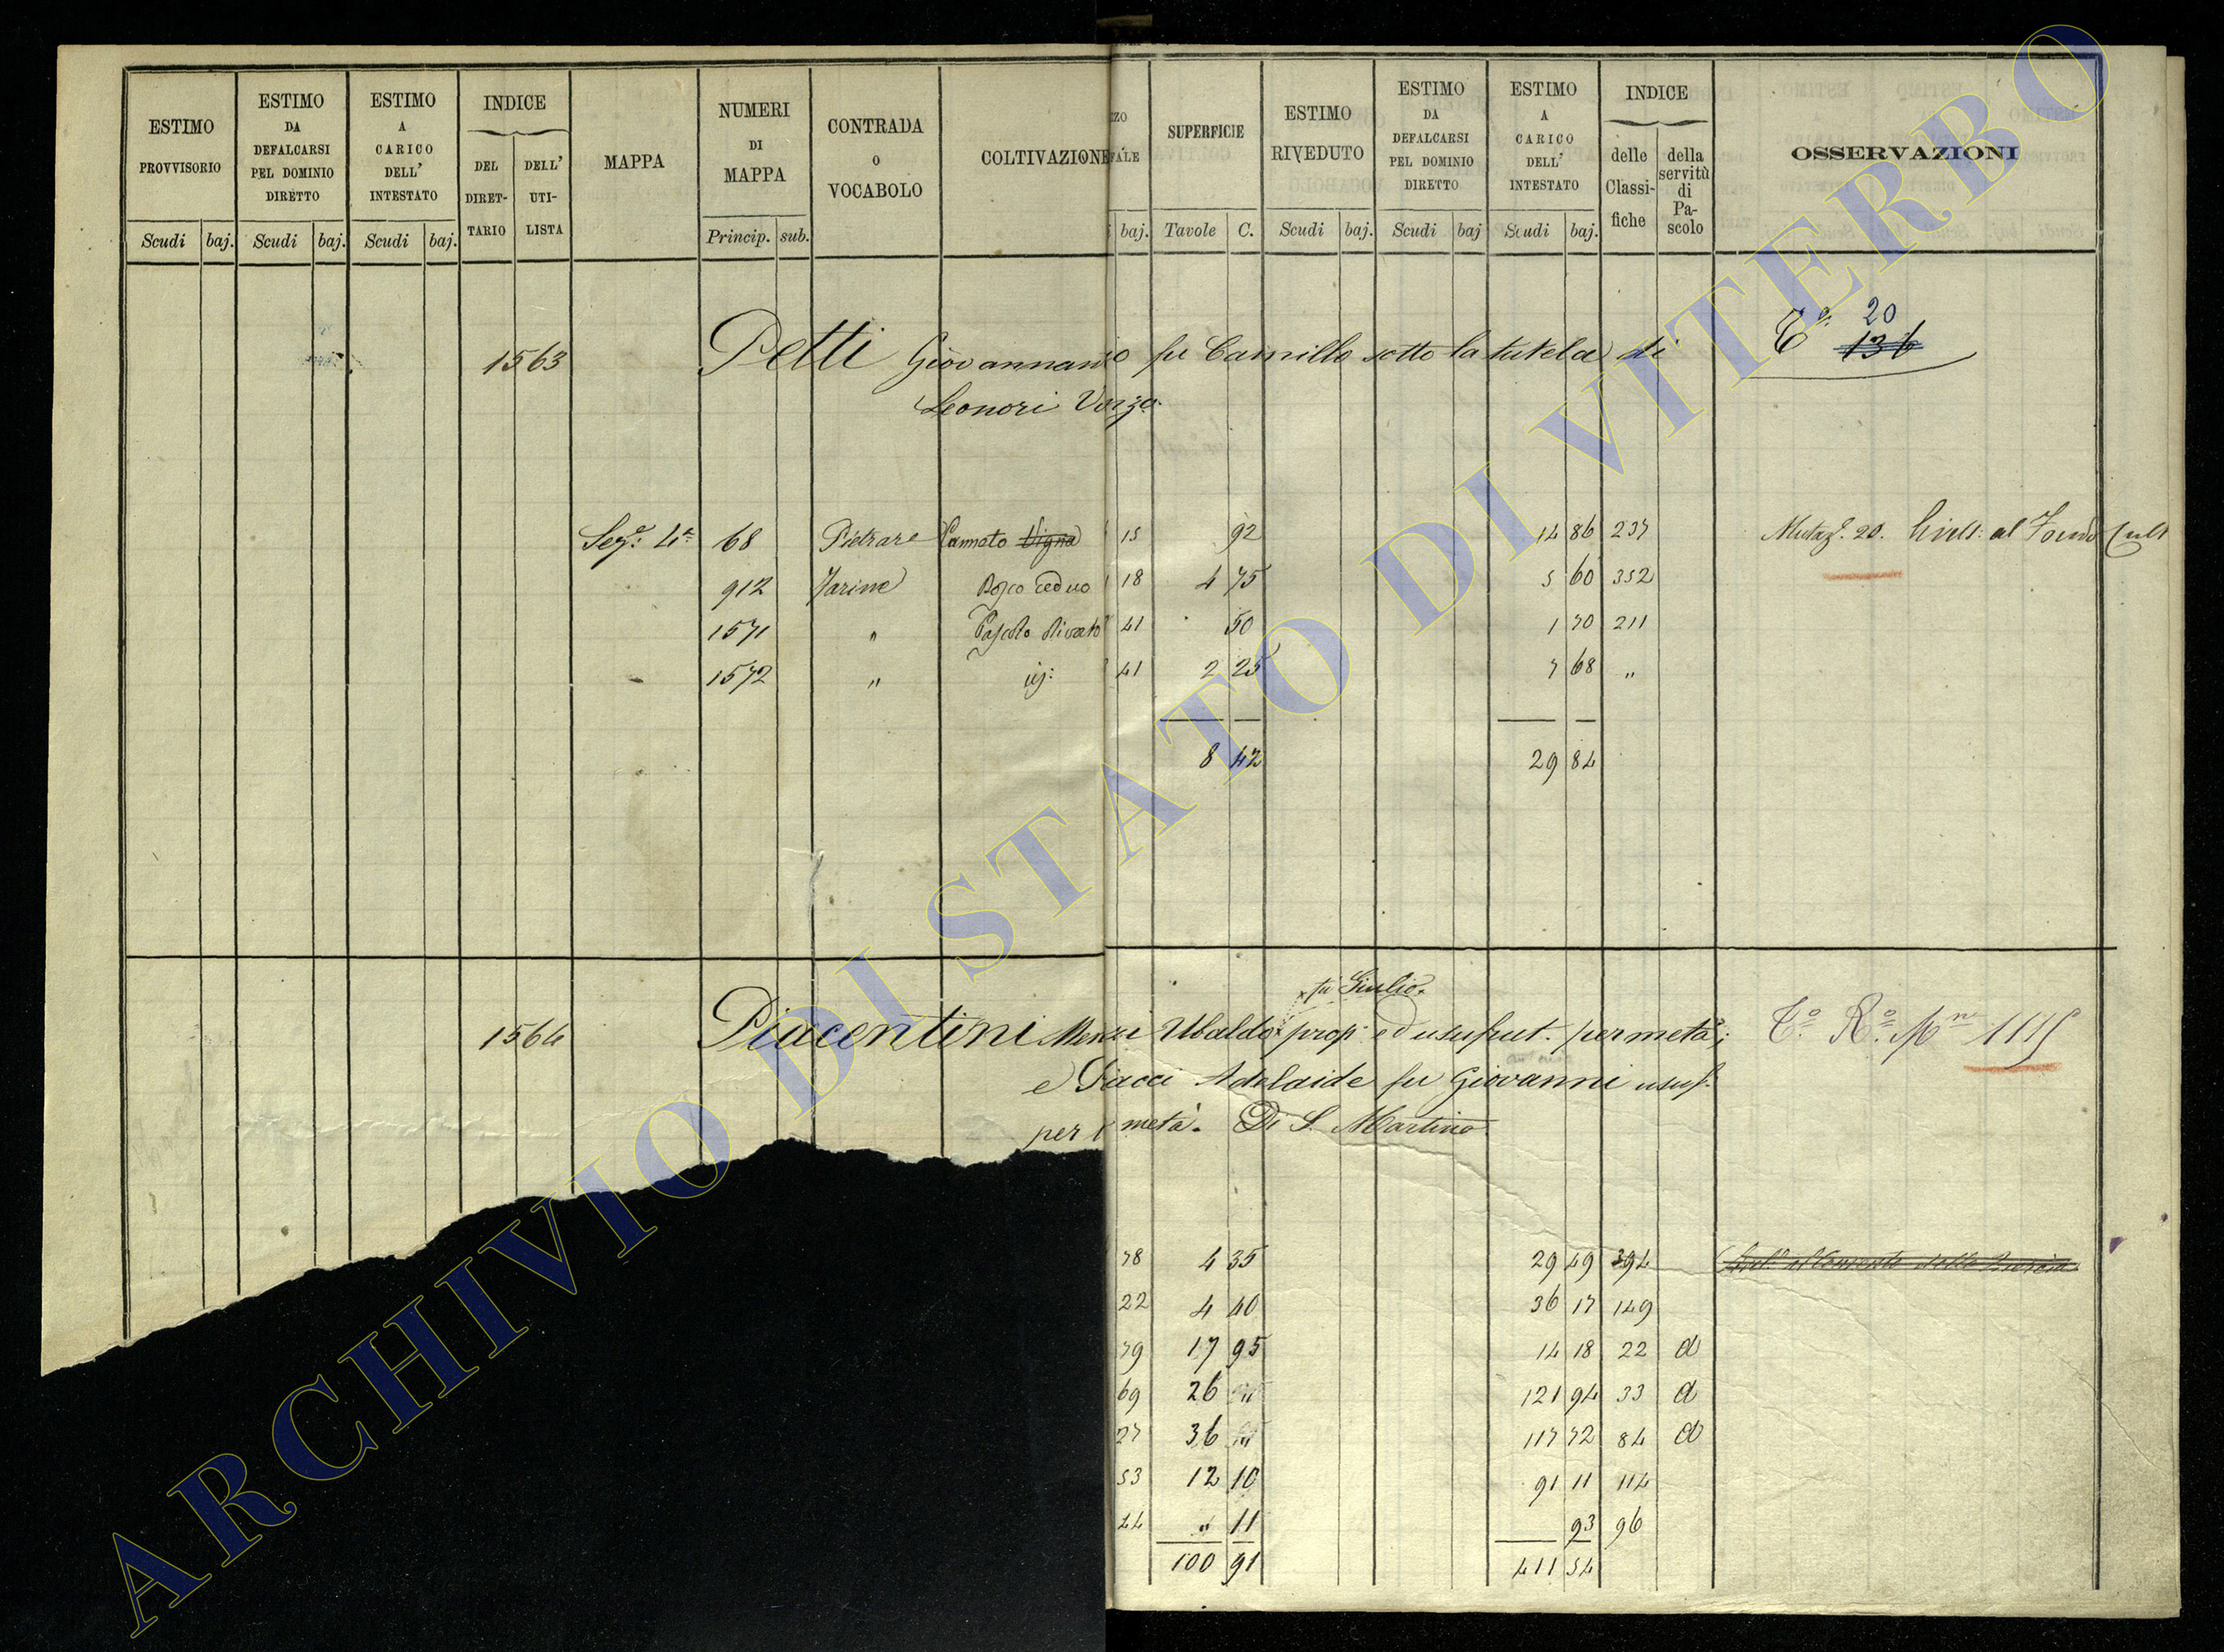 ESTIMO PROVVISORIO
Scudi baj.
ESTIMO DA DEFALCARSI PEL DOMINIO DIRETTO
Scudi baj.
ESTIMO A CARICO DELL' INTESTATO
Scudi baj.
INDICE
DEL DIRET- TARIO
DELL' UTI- LISTA
MAPPA
NUMERI DI MAPPA
Princip. sub.
CONTRADA O VOCABOLO
COLTIVAZIONE
baj.
SUPERFICIE
Tavole C.
ESTIMO RIVEDUTO
Scudi baj.
ESTIMO DA DEFALCARSI PEL DOMINIO DIRETTO
Scudi baj
ESTIMO A CARICO DELL' INTESTATO
Scudi baj.
INDICE
delle Classi- fiche
della servitù di Pa- scolo
OSSERVAZIONI
1563 Petti Giovannanio fu Camillo sotto la tutela di
20
136
Leonori
68 Pietrare Canneto Vigna 15 92 14 86 237
912 Farine Bosco ceduo 18 4 75 5 60 352
1571 " Pascolo olivato 41 50 1 70 211
1572 " 41 2 25 7 68 "
8 42 29 84
fu Giulio
1564 Piacentini Menzi Ubaldo prop. ed usufrut. per metà;
e Piacci Adelaide fu Giovanni usuf.
per metà. Di S. Martino
78 4 35 29 49 394
22 4 40 36 17 149
79 17 95 14 18 22 a
69 26 " 121 94 33 a
27 36 " 117 72 84 a
53 12 10 91 11 114
44 " 11 93 96
100 91 411 54
ARCHIVIO DI STATO DI VITERBO